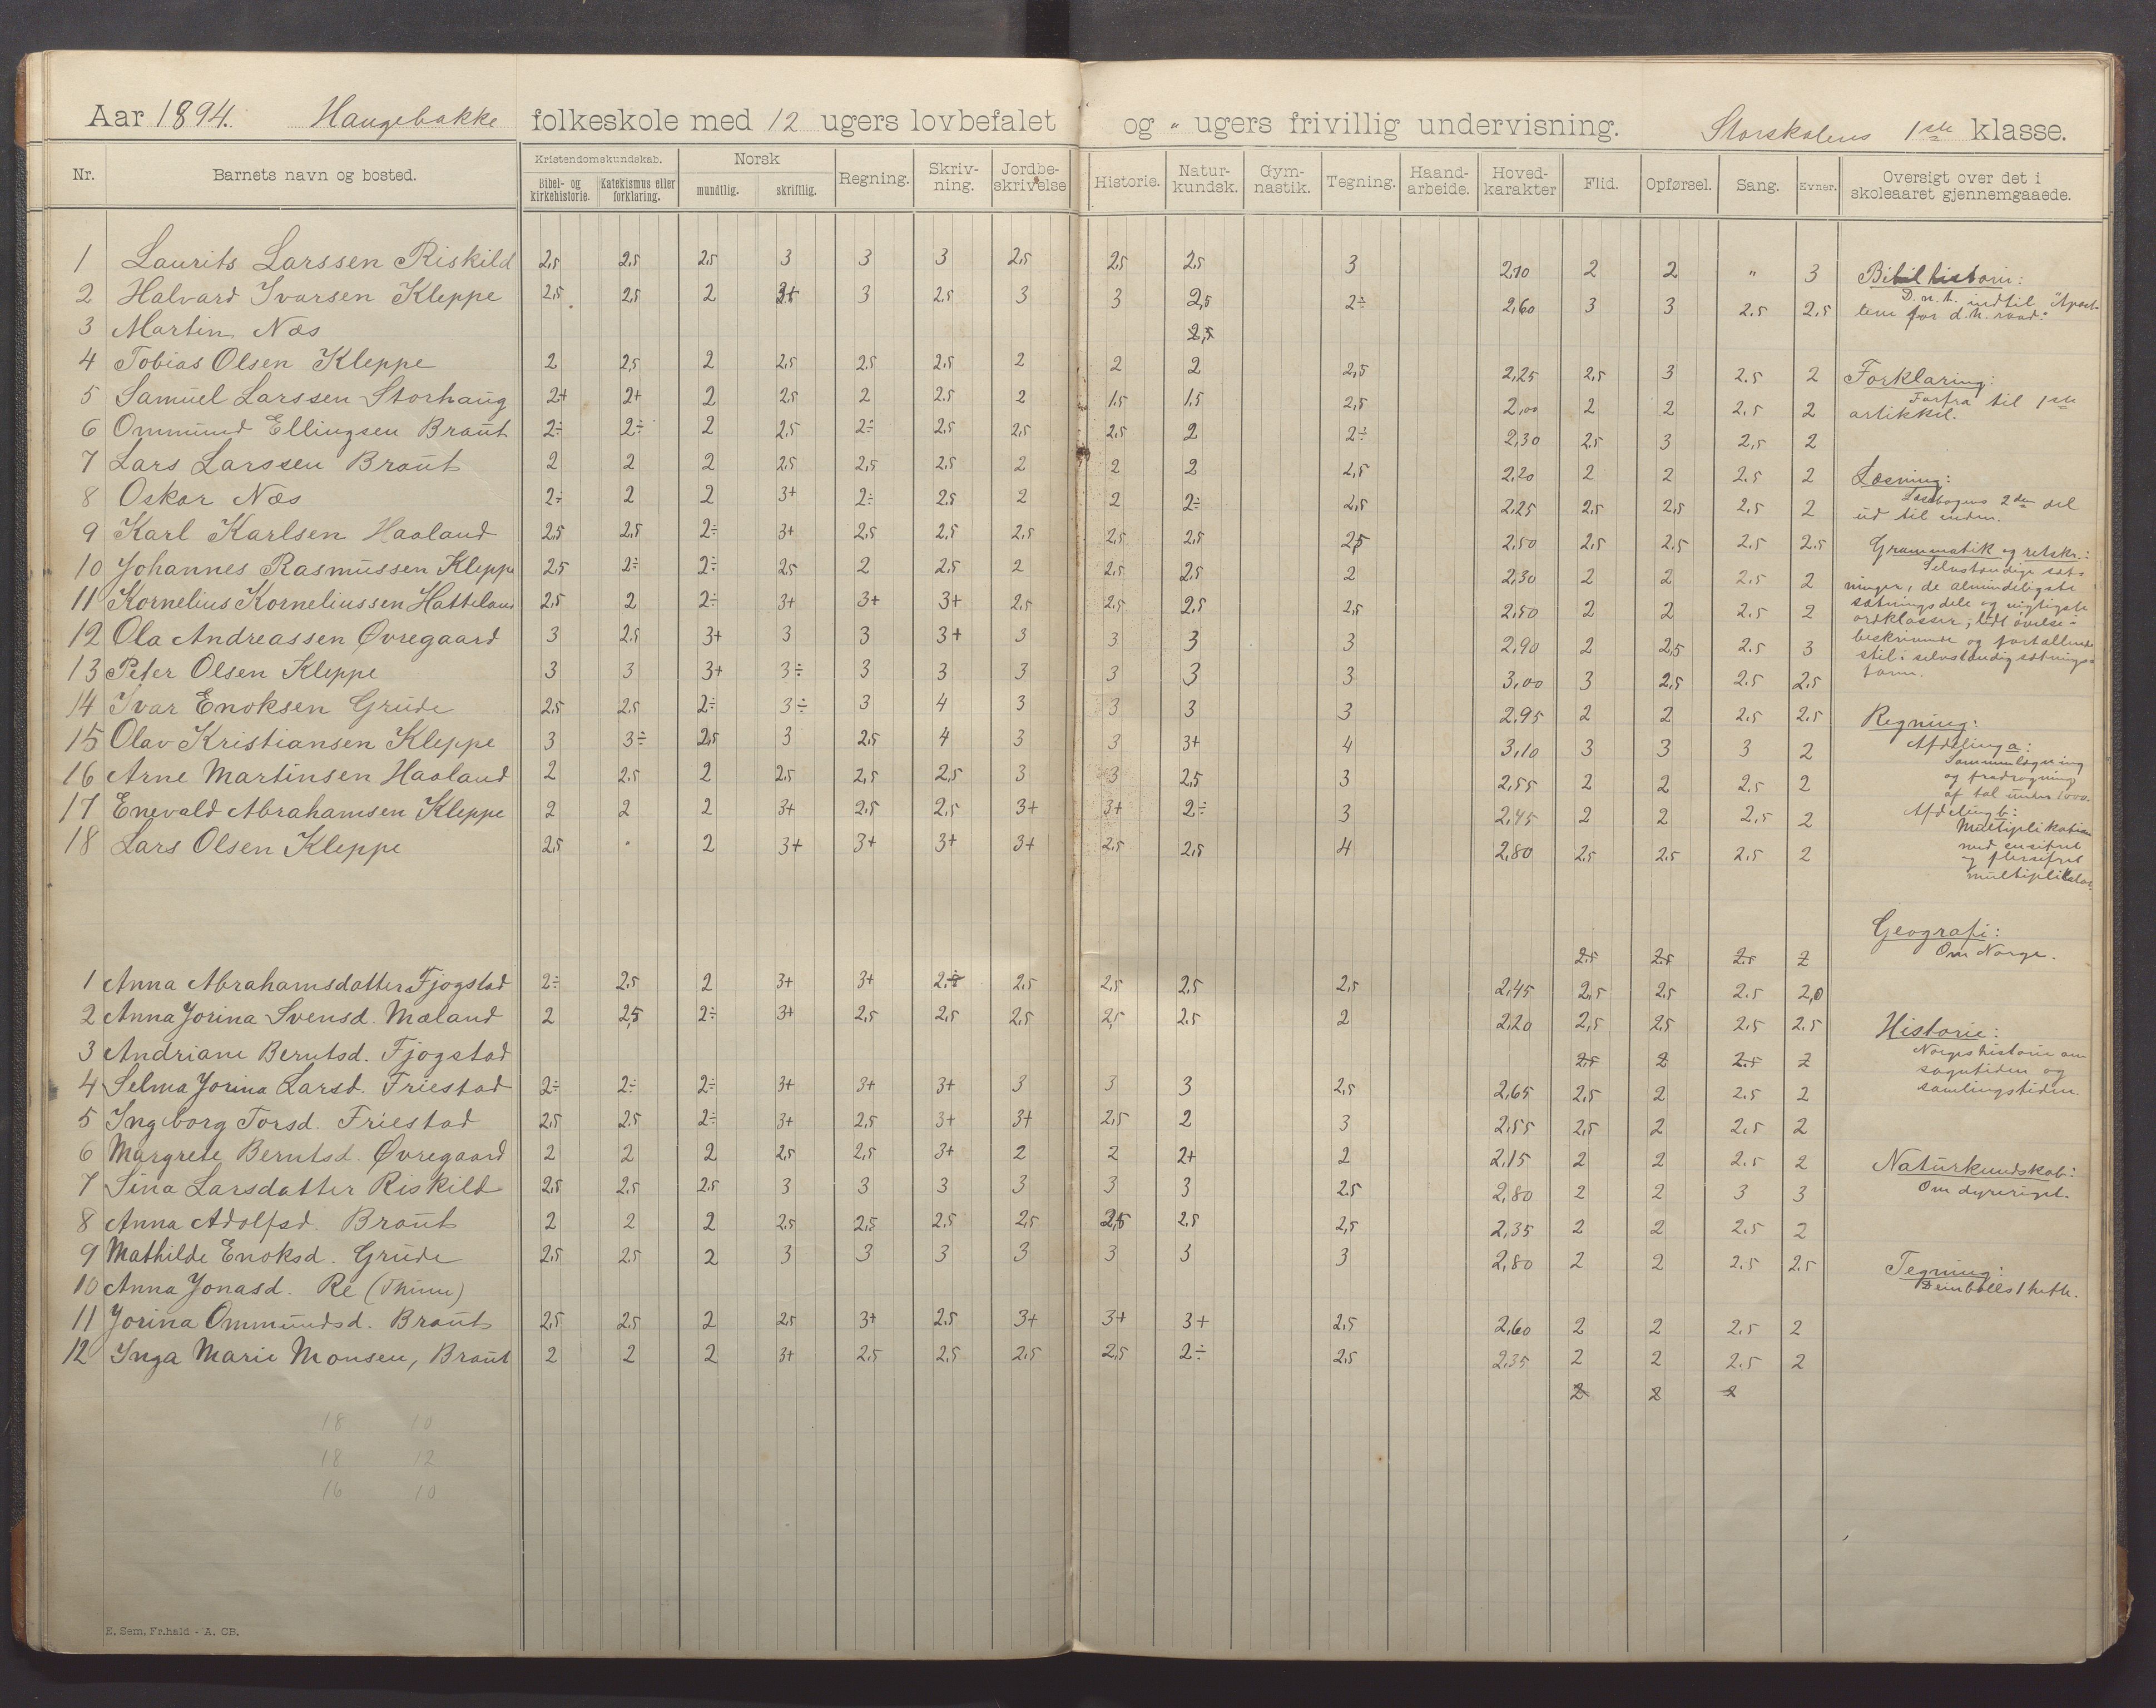 Aar 1894. Haugebakke folkeskole med 12 ugers lovbefalet og " ugers frivillig undervisning. Storskolens 1ste klasse.
Nr. Barnets navn og bosted. Kristendomskundskab. Bibel- og kirkehistorie. Katekismus eller forklaring. Norsk mundtlig. skriftlig. Regning. Skriv-ning. Jordbe-skrivelse Historie. Natur-kundsk. Gym-nastik. Tegning. Haand-arbeide. Hoved-karakter Flid. Opførsel. Sang. Evner. Oversigt over det i skoleaaret gjennemgaaede.
1 Laurits Larssen Riskild 2,5 2,5 2,5 3 3 3 2,5 2,5 2,5 3 2,70 2 2 " 3
2 Halvard Ivarsen Kleppe 2,5 2,5 2 3 2,5 3 3 2,5 2÷ 2,60 3 3 2,5 2,5
3 Martin Næs 2,5
4 Tobias Olsen Kleppe 2 2,5 2 2,5 2,5 2,5 2 2 2 2,5 2,25 2,5 3 2.5 2
5 Samuel Larssen Storhaug 2+ 2+ 2 2,5 2 2.5 2 1.5 1.5 2,5 2,00 2 2 2.5 2
6 Ommund Ellingsen Braut 2÷ 2÷ 2 2,5 2÷ 2,5 2,5 2,5 2 2÷ 2,30 2,5 3 2,5 2
7 Lars Larssen Braut 2 2 2 2,5 2,5 2,5 2 2 2 2,5 2,20 2 2 2.5 2
8 Oskar Næs 2÷ 2 2 3+ 2÷ 2,5 2 2 2÷ 2,5 2,25 2,5 2,5 2,5 2
9 Karl Karlsen Haaland 2,5 2,5 2÷ 3+ 2,5 2,5 2,5 2,5 2,5 2,5 2,50 2,5 2,5 2.5 2.5
10 Johannes Rasmussen Kleppe 2,5 2÷ 2÷ 2,5 2 2,5 2 2,5 2,5 2 2,30 2 2 2,5 2
11 Kornelius Korneliussen Hatteland 2,5 2 2÷ 3+ 3+ 3+ 2,5 2,5 2,5 2,5 2,50 2 2 2.5 2
12 Ola Andreassen Øvregaard 3 2.5 3+ 3 3 3+ 3 3 3 3 2,90 2 2,5 2.5 3
13 Peter Olsen Kleppe 3 3 3+ 3÷ 3 3 3 3 3 3 3,00 3 2,5 2.5 2,5
14 Ivar Enoksen Grude 2,5 2,5 2÷ 3÷ 3 4 3 3 3 3 2,95 2 2 2,5 2,5
15 Olav Kristiansen Kleppe 3 3÷ 2,5 3 2,5 4 3 3 3+ 4 3,10 3 3 3 2
16 Arne Martinsen Haaland 2 2.5 2 2,5 2,5 2,5 3 3 2,5 3 2,55 2 2 2.5 2
17 Enevald Abrahamsen Kleppe 2 2 2 3+ 2,5 2,5 3+ 3+ 2÷ 3 2,45 2 2 2,5 2
18 Lars Olsen Kleppe 2,5 . 2 3+ 3+ 3+ 3+ 2,5 2,5 4 2,80 2,5 2,5 2,5 2
2.5 2.5 2.5 2
1 Anna Abrahamsdatter Fjogstad 2÷ 2,5 2 3+ 3+ 2÷ 2,5 2,5 2,5 2,5 2,45 2,5 2,5 2.5 2,0
2 Anna Jorina Svensd. Mæland 2 2,5 2÷ 3+ 2,5 2,5 2,5 2,5 2.5 2 2,20 2,5 2,5 2,5 2.5
3 Andriane Berntsd. Fjogstad 2.5 2 2.5 2
4 Selma Jorina Larsd. Friestad 2÷ 2÷ 2÷ 3+ 3+ 3+ 3 3 3 2,5 2,65 2,5 2 2.5 2
5 Ingeborg Torsd. Friestad 2,5 2,5 2÷ 3+ 2,5 3+ 3+ 2,5 2 3 2,55 2,5 2 2,5 2
6 Margrete Berntsd. Øvregaard 2 2 2 2,5 2,5 3+ 2 2 2+ 2 2,15 2 2 2.5 2
7 Sina Larsdatter Riskild 2,5 2,5 2,5 3 3 3 3 3 3 2,5 2,80 2 2 3 3
8 Anna Adolfsd. Braut 2 2 2 2,5 2,5 2,5 2,5 2,5 2.5 2,5 2,35 2 2 2.5 2
9 Mathilde Enoksd. Grude 2,5 2,5 2 3 3 3 3 3 3 3 2,80 2 2 2,5 2.5
10 Anna Jonasd. Re (Thime)
11 Jorina Ommundsd. Braut 2,5 2,5 2 2,5 3+ 2,5 3+ 3+ 3+ 2,5 2,60 2 2 2,5 2
12 Inga Marie Monsen, Braut 2 2 2 3+ 2,5 2,5 2,5 2,5 2÷ 2,5 2,35 2 2 2.5 2
2 2 2
18 10
18 12
16 10
Bibelhistorie:
D. n. t. indtil "Apost-
lene for d. h. raad."
Forklaring:
Forfra til 1ste
artikkel.
Læsning:
Læsebogens 2den del
ud til enden.
Grammatik og retskr.:
Selvstændige sæt-
ninger, de almindeligste
sætningsdele og vigtigste
ordklasser; lidt øvelse i
beskrivende og fortællende
stil i selvstændig sætnings-
form.
Regning:
Afdeling a:
Sammenlægning
og fradragning
af tal under 1000.
Afdeling b:
Multiplikation
med ensifret
og flersifret
multiplikator.
Geografi:
Om Norge.
Historie:
Norges historie om
sagntiden og
samlingstiden.
Naturkundskab:
Om dyreriget.
Tegning:
Deinbolls 1 hefte.
E. Sem, Fr.hald - A. CB.